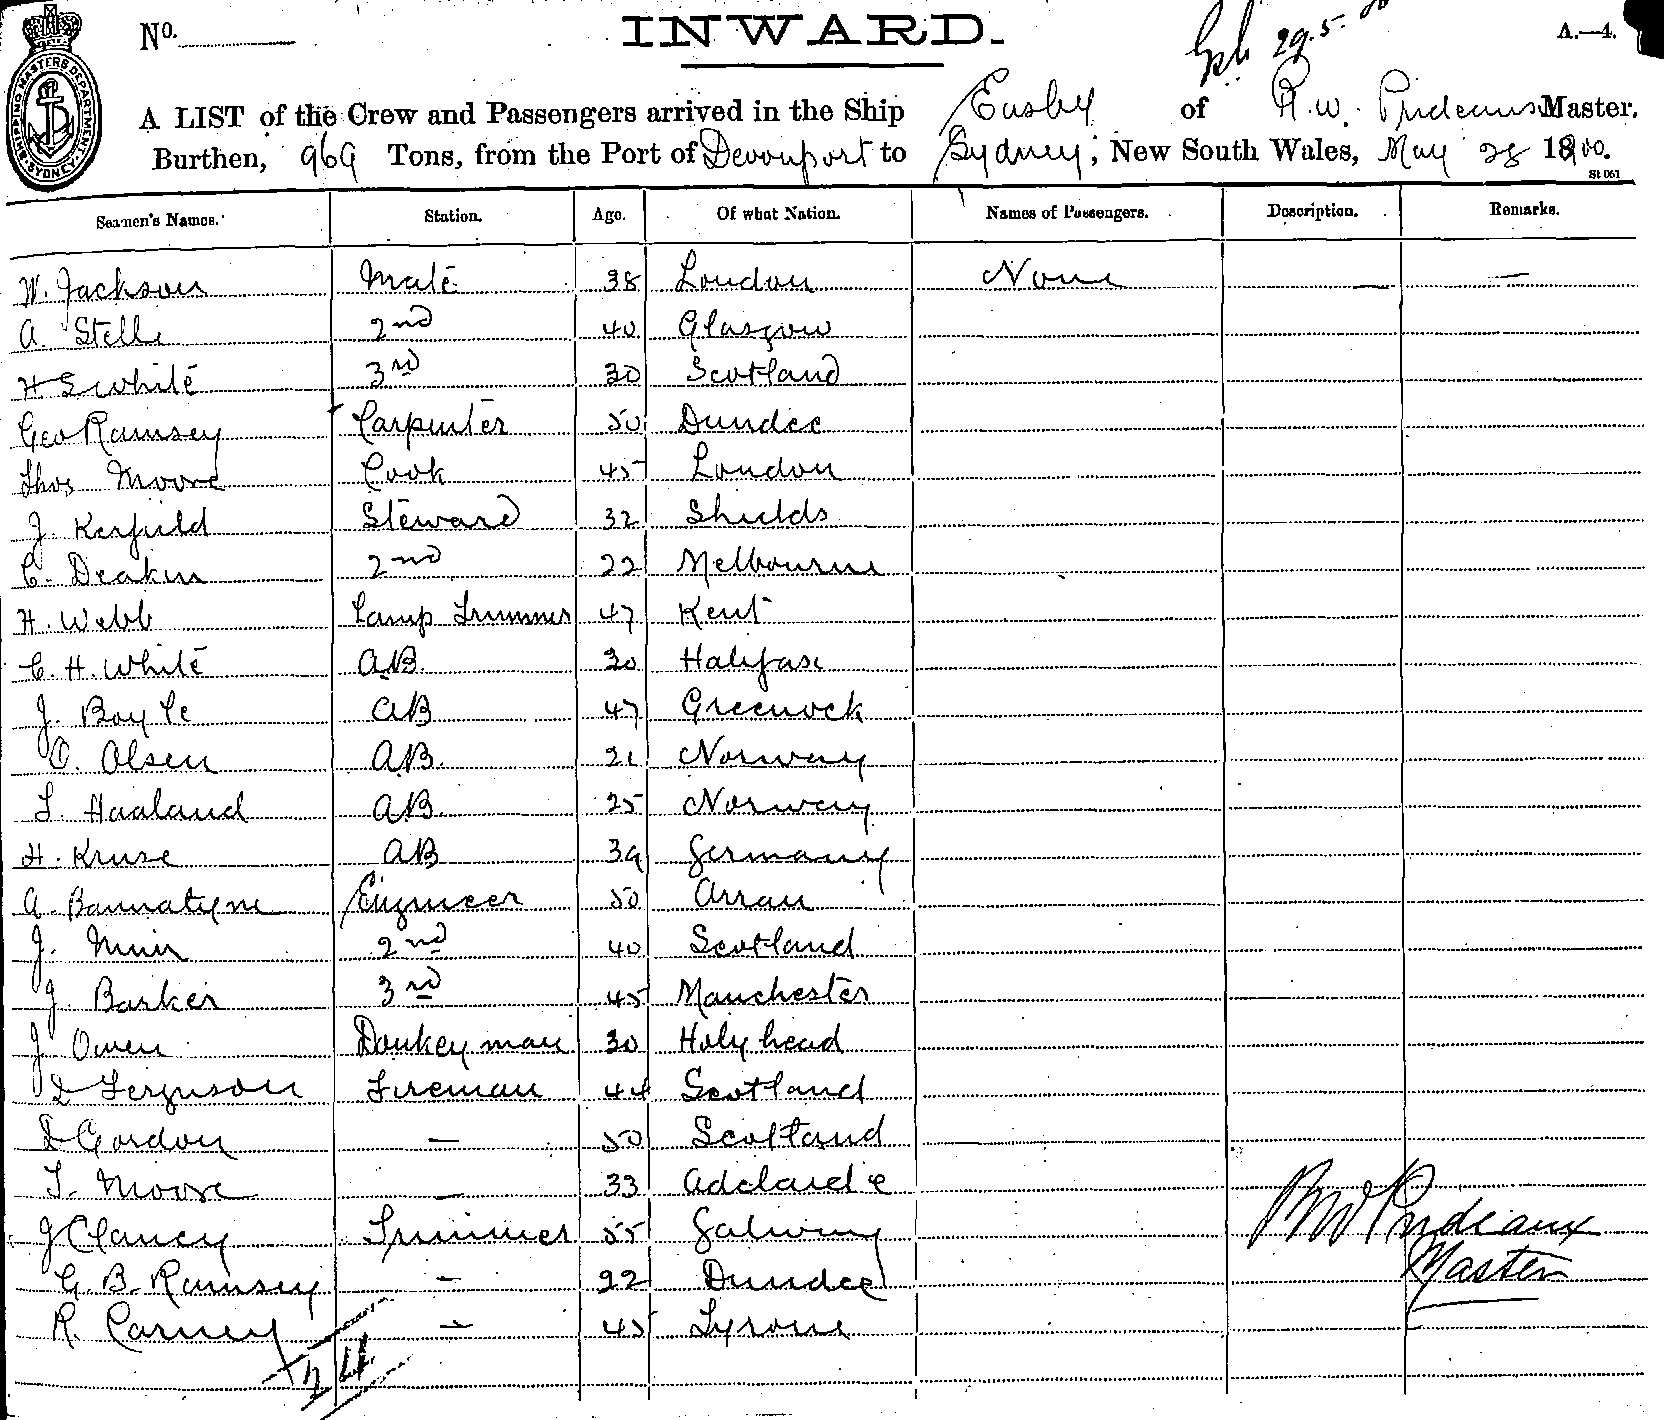 No.
INWARD.
29.5.
A.—4.
SHIPPING MASTERS DEPARTMENT SYDNEY
A LIST of the Crew and Passengers arrived in the Ship Easby of R. W. Prideaux Master,
Burthen, 969 Tons, from the Port of Devonport to Sydney, New South Wales, May 28 1900.
St 061
Seamen's Names. Station. Age. Of what Nation. Names of Passengers. Description. Remarks.
W. Jackson Mate 38 London None — —
A. Stelle 2nd 40 Glasgow
H S White 3rd 30 Scotland
Geo Ramsey Carpenter 50 Dundee
Thos Moore Cook 45 London
J. Kerfield Steward 32 Shields
C. Deakin 2nd 22 Melbourne
H. Webb Lamp Trimmer 47 Kent
C. H. White AB. 30 Halifax
J. Boyle AB 47 Greenock
O. Olsen AB. 21 Norway
T. Haaland AB. 25 Norway
H. Kruse AB 39 Germany
A. Bannatyne Engineer 50 Arran
J. Muir 2nd 40 Scotland
J. Barker 3rd 45 Manchester
J. Owen Donkeyman 30 Holyhead
D Ferguson Fireman 44 Scotland
D Gordon — 50 Scotland
T. Moore — 33 Adelaide
J Clancy Trimmer 55 Galway
G. B. Ramsey — 22 Dundee
R. Carney — 45 Tyrone
RW Prideaux
Master
24